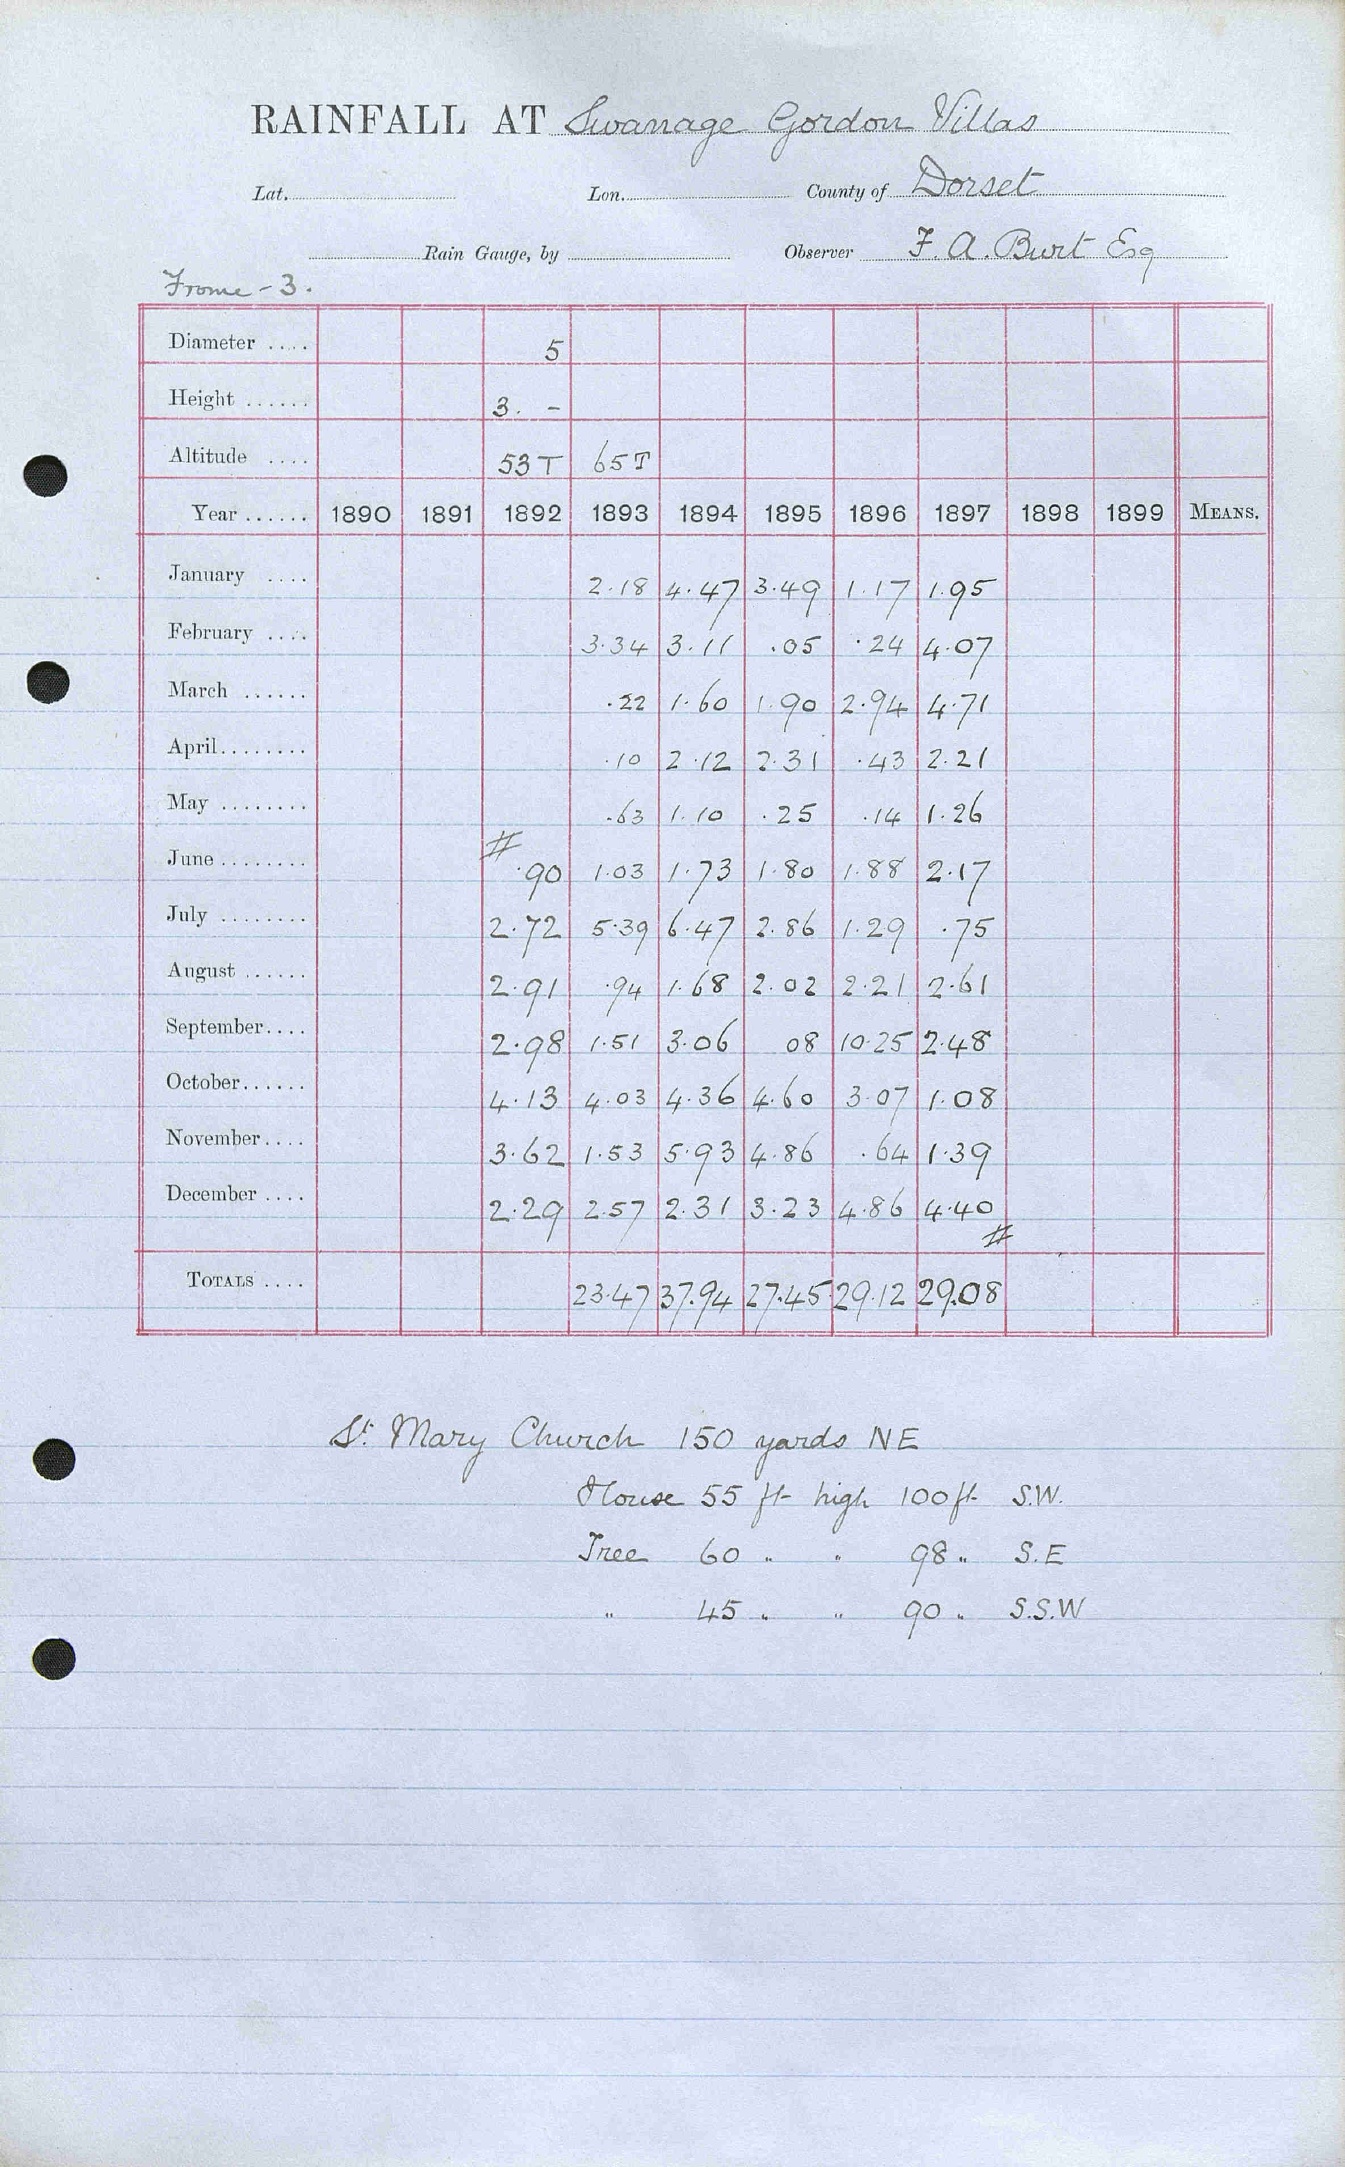 RAINFALL AT Swanage Gordon Villas
Lat. Lon. County of Dorset
Rain Gauge, by Observer F. A. Burt Esq
Frome - 3.
Diameter .... 5
Height ...... 3. -
Altitude .... 53T 65T
Year ...... 1890 1891 1892 1893 1894 1895 1896 1897 1898 1899 MEANS.
January .... 2.18 4.47 3.49 1.17 1.95
February .... 3.34 3.11 .05 .24 4.07
March ...... .22 1.60 1.90 2.94 4.71
April........ .10 2.12 2.31 .43 2.21
May ........ .63 1.10 .25 .14 1.26
#
June ........ .90 1.03 1.73 1.80 1.88 2.17
July ........ 2.72 5.39 6.47 2.86 1.29 .75
August ...... 2.91 .94 1.68 2.02 2.21 2.61
September.... 2.98 1.51 3.06 08 10.25 2.48
October...... 4.13 4.03 4.36 4.60 3.07 1.08
November.... 3.62 1.53 5.93 4.86 .64 1.39
December .... 2.29 2.57 2.31 3.23 4.86 4.40
#
TOTALS .... 23.47 37.94 27.45 29.12 29.08
St. Mary Church 150 yards NE
House 55 ft high 100 ft S.W.
Tree 60 " " 98 " S.E
" 45 " " 90 " S.S.W